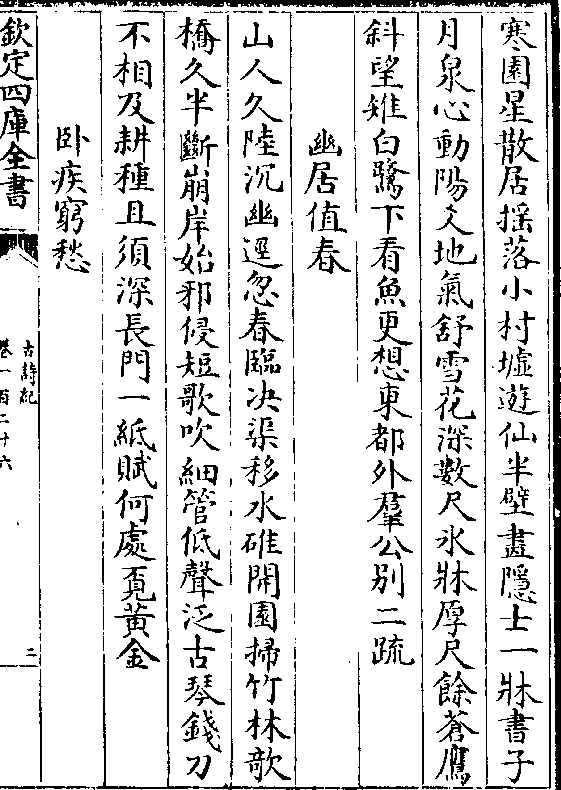 寒園星散居搖落小村墟遊仙半壁畫隱士一牀書子
月泉心動陽爻地氣舒雪花深數尺氷牀厚尺餘蒼鷹
斜望雉白鷺下看魚更想東都外羣公别二疏
幽居值春
山人久陸沉幽逕忽春臨决渠移水碓開園掃竹林欹
橋久半斷崩岸始邪侵短歌吹細管低聲泛古琴錢刀
不相及耕種且須深長門一紙賦何處覓黃金
卧疾窮愁
欽定四庫全書
古詩紀
卷一百二十六
三